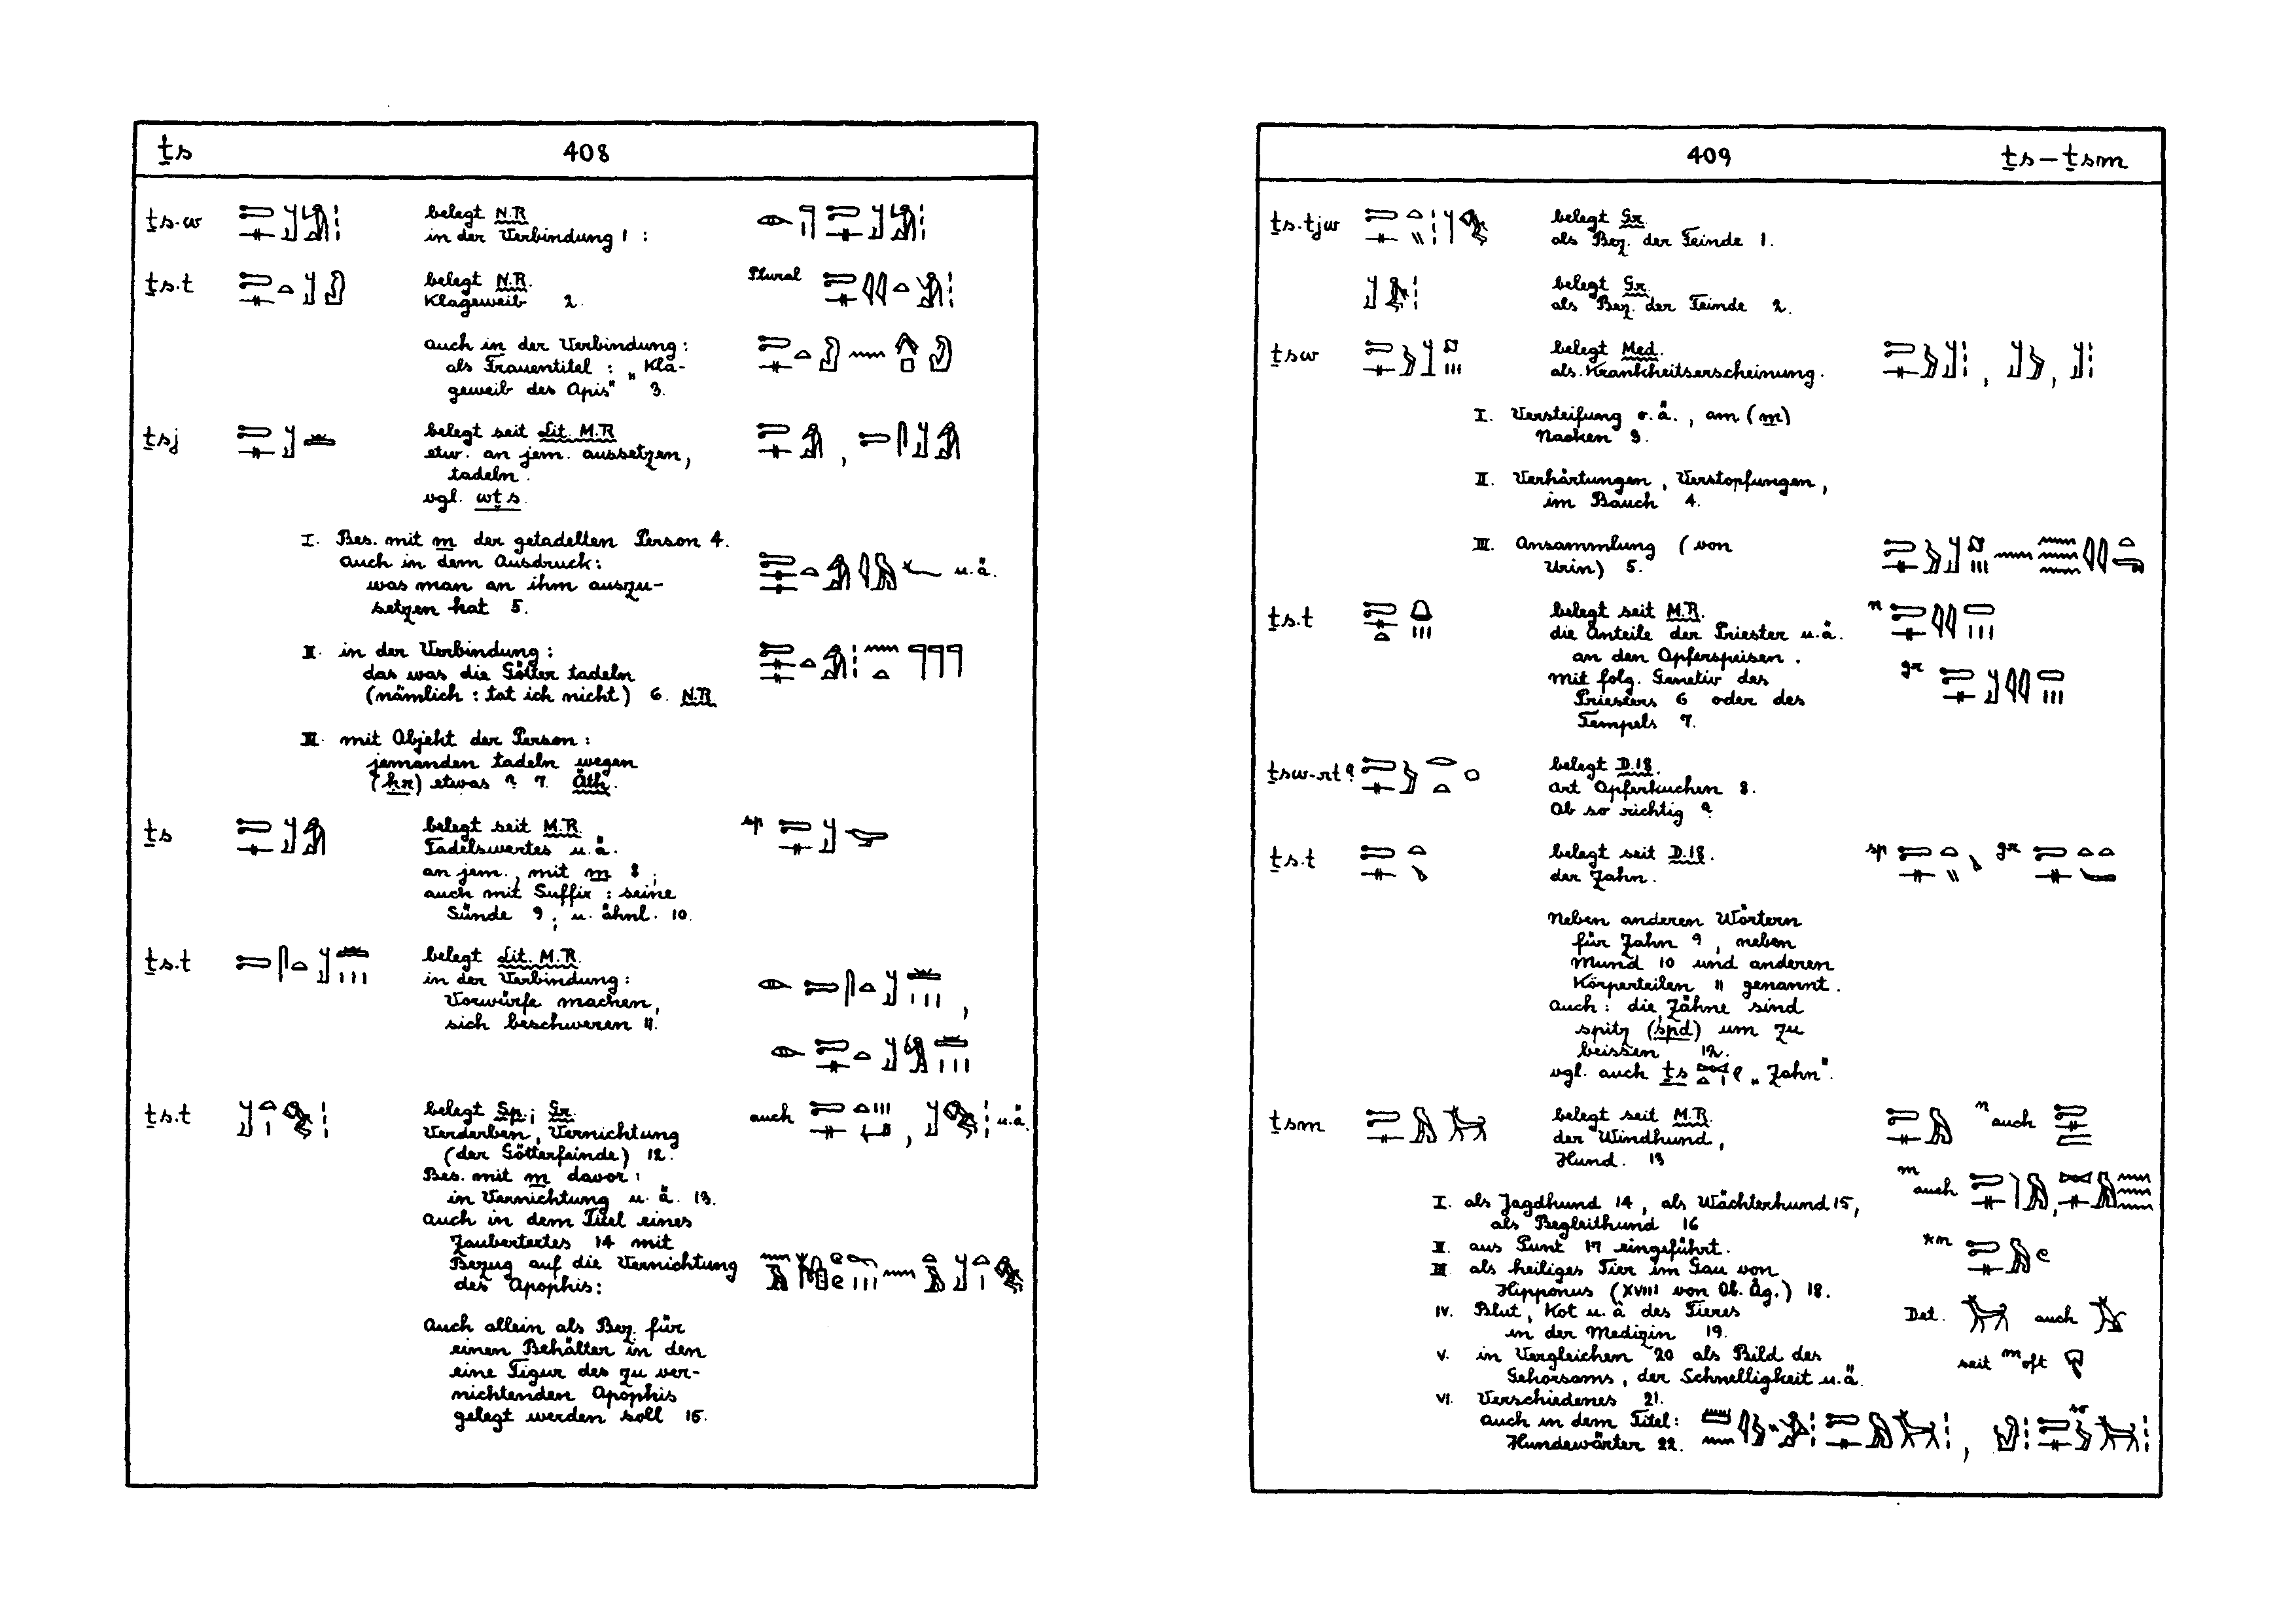 ṯs 408
ṯs.w belegt N.R.
in der Verbindung 1 :
ṯs.t belegt N.R. Plural
Klageweib 2.
auch in der Verbindung:
als Frauentitel : „Kla-
geweib des Apis" 3.
ṯsj belegt seit Lit. M.R.
etw. an jem. aussetzen,
tadeln.
vgl. wṯs.
I. Bes. mit m der getadelten Person 4.
auch in dem Ausdruck:
was man an ihm auszu-
setzen hat 5. u.ä.
II. in der Verbindung :
das was die Götter tadeln
(nämlich : tat ich nicht) 6. N.R.
III. mit Objekt der Person :
jemanden tadeln wegen
(ḥr) etwas ? 7. Äth.
ṯs belegt seit M.R. sp
Tadelswertes u.ä.
an jem., mit m 8 ;
auch mit Suffix : seine
Sünde 9 ; u. ähnl. 10.
ṯs.t belegt Lit. M.R.
in der Verbindung :
Vorwürfe machen,
sich beschweren 11.
ṯs.t belegt Sp.; Gr. auch , u.ä.
Verderben, Vernichtung
(der Götterfeinde) 12.
Bes. mit m davor :
in Vernichtung u. ä. 13.
auch in dem Titel eines
Zaubertextes 14 mit
Bezug auf die Vernichtung
des Apophis:
Auch allein als Bez. für
einen Behälter in den
eine Figur des zu ver-
nichtenden Apophis
gelegt werden soll 15.
409 ṯs – ṯsm
ṯs.tjw belegt Gr.
als Bez. der Feinde 1.
belegt Gr.
als Bez. der Feinde 2.
ṯsw belegt Med.
als Krankheitserscheinung.
I. Versteifung o.ä., am (m)
Nacken 3.
II. Verhärtungen, Verstopfungen,
im Bauch 4.
III. Ansammlung (von
Urin) 5.
ṯs.t belegt seit M.R. n
die Anteile der Priester u.ä.
an den Opferspeisen. gr
mit folg. Genetiv des
Priesters 6 oder des
Tempels 7.
ṯsw-rt? belegt D.18.
Art Opferkuchen 8.
Ob so richtig ?
ṯs.t belegt seit D.18. sp gr
der Zahn.
Neben anderen Wörtern
für Zahn 9, neben
Mund 10 und anderen
Körperteilen 11 genannt.
Auch : die Zähne sind
spitz (spd) um zu
beissen 12.
vgl. auch ṯs „Zahn".
ṯsm belegt seit M.R. n auch
der Windhund,
Hund. 13
m auch
I. als Jagdhund 14, als Wächterhund 15,
als Begleithund 16
II. aus Punt 17 eingeführt. *m
III. als heiliges Tier im Gau von
Hipponus (XVIII von Ob. Äg.) 18.
IV. Blut, Kot u.ä. des Tieres Det. auch
in der Medizin 19.
V. in Vergleichen 20 als Bild des seit m oft
Gehorsams, der Schnelligkeit u.ä.
VI. Verschiedenes 21.
auch in dem Titel : so
Hundewärter 22.